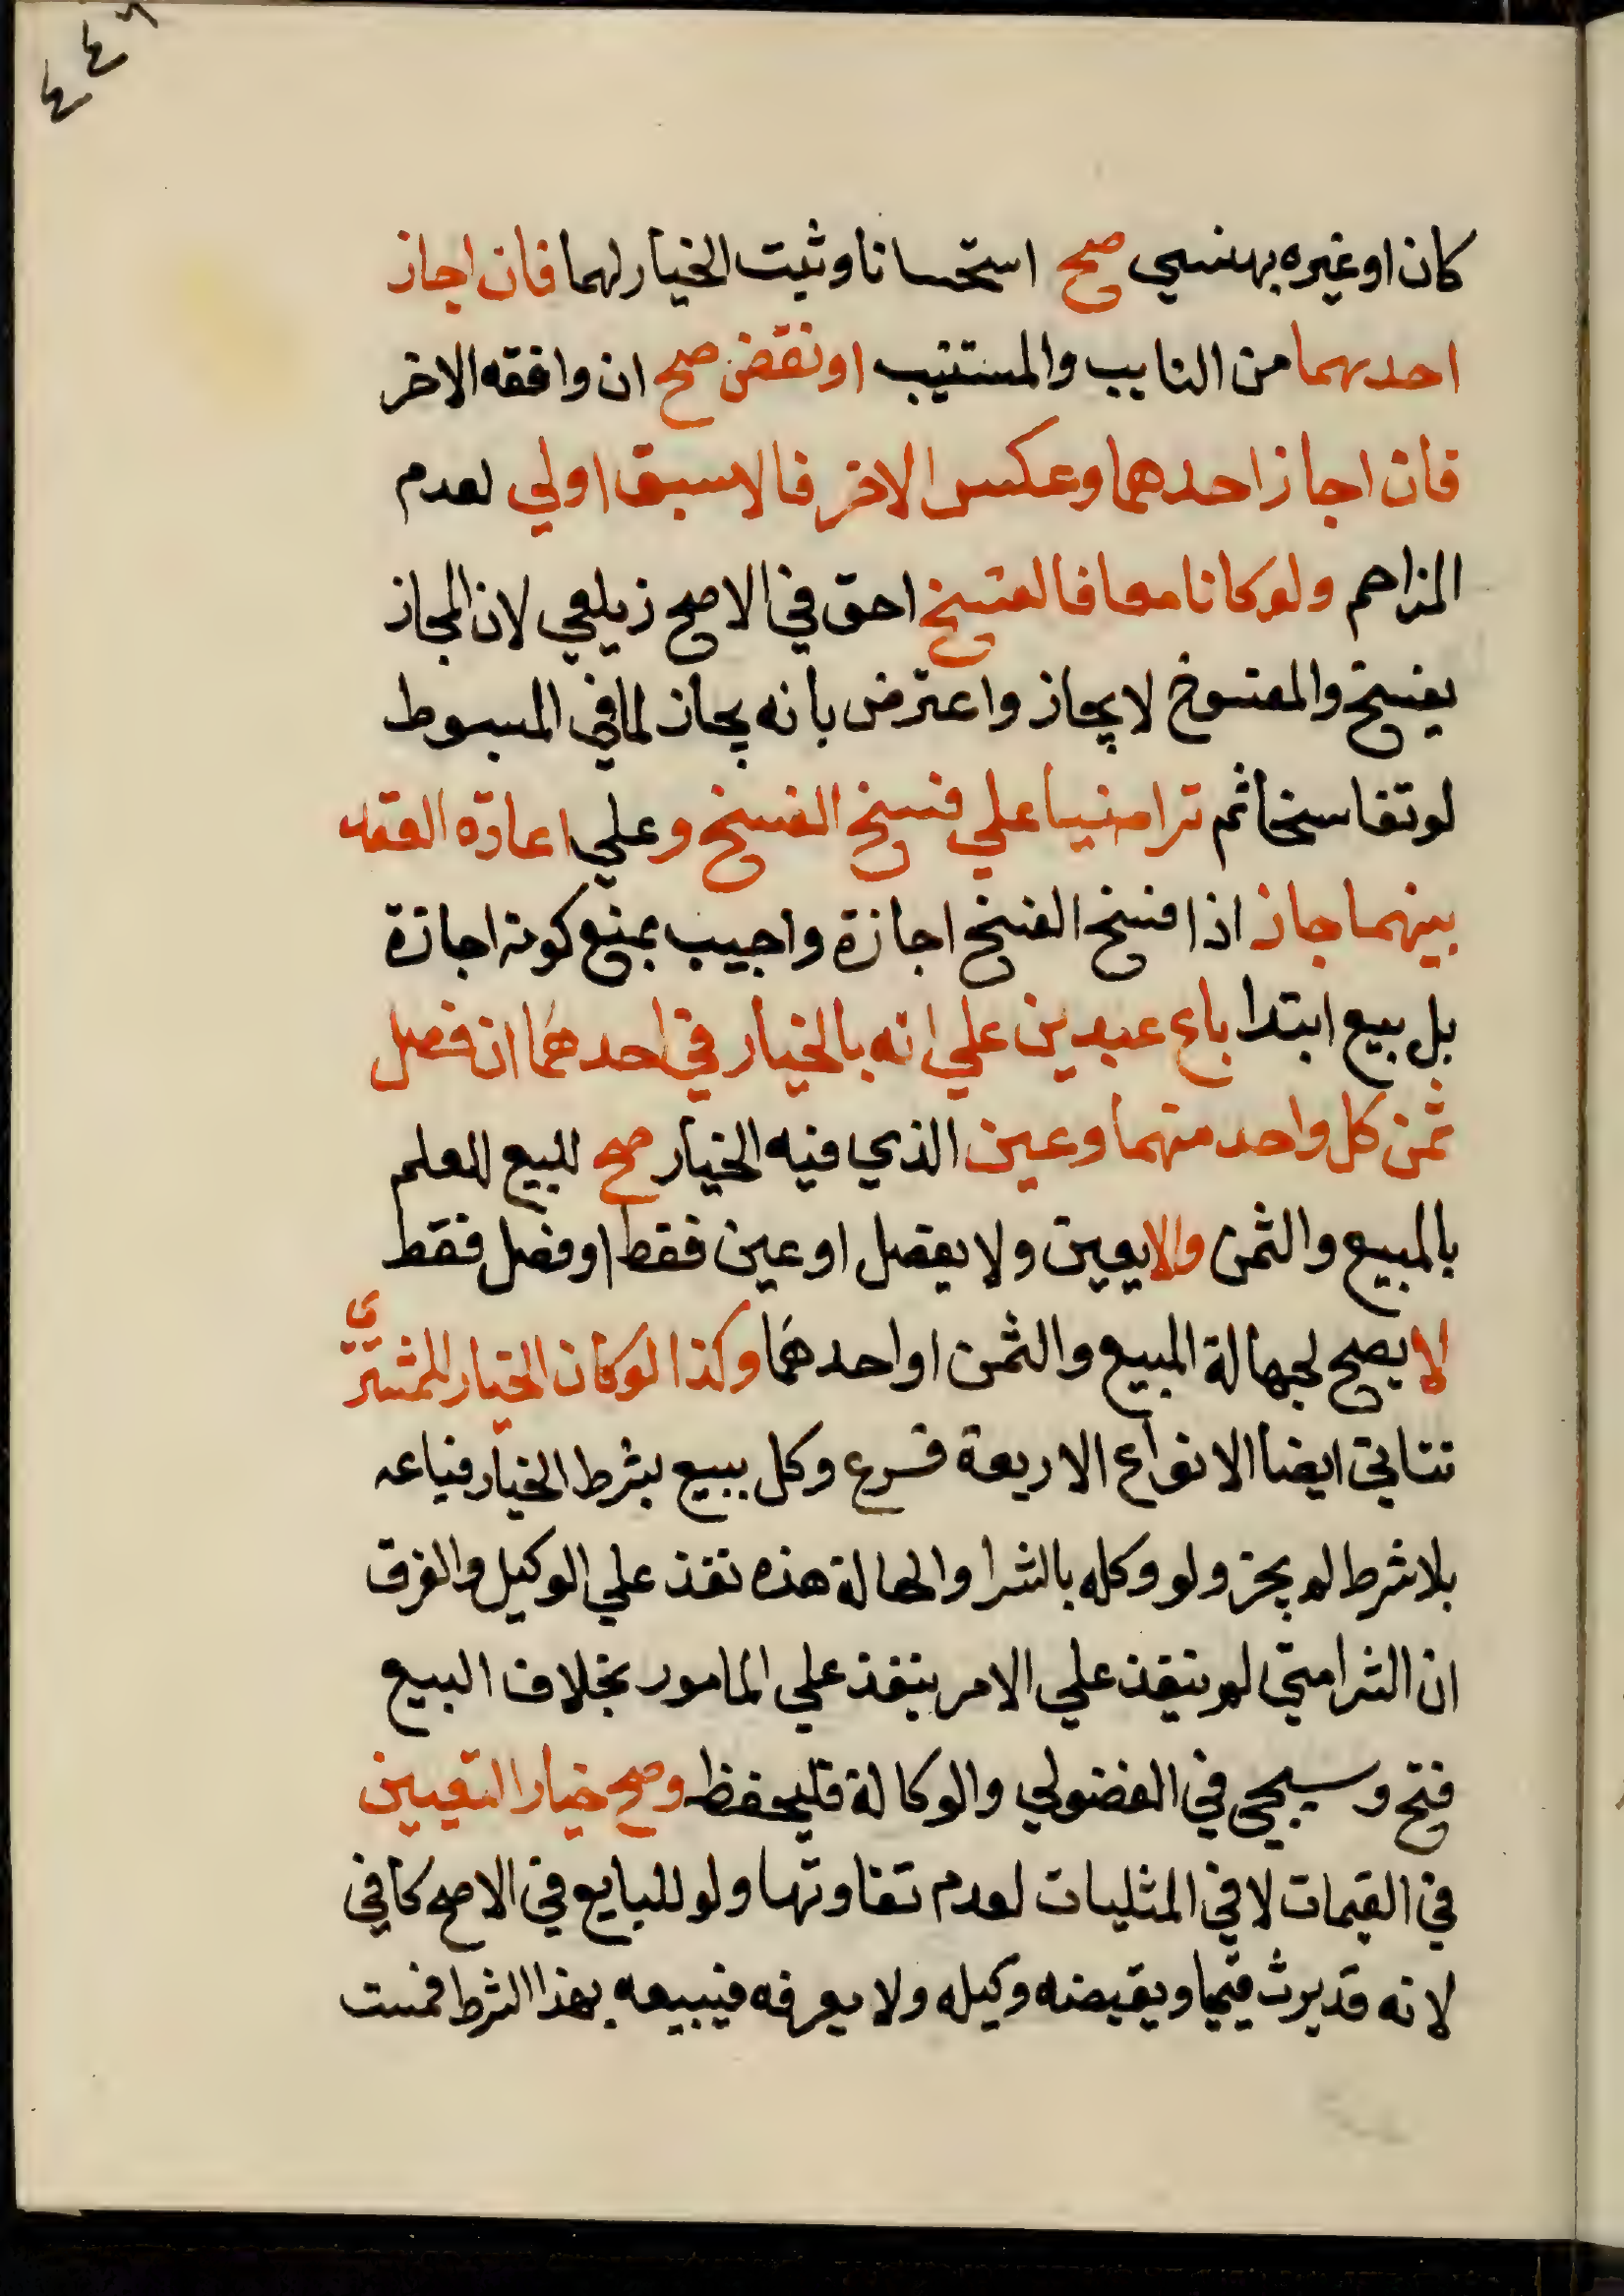 ٤٤٦
كان او غيره بهنسي صح استحسانا وثبت الخيار لهما فان اجاز
احدهما من النايب والمستنيب او نقض صح ان وافقه الاخر
فان اجاز احدهما وعكس الاخر فالاسبق اولي لعدم
المزاحم ولو كانا معا فالفسخ احق في الاصح زيلعي لان المجاز
يفسخ والمفسوخ لا يجاز واعترض بانه يجاز لما في المبسوط
لو تفاسخا ثم تراضيا علي فسخ الفسخ وعلي اعادة العقد
بينهما جاز اذا فسخ الفسخ اجازة واجيب بمنع كونه اجازة
بل بيع ابتدا باع عبدين علي انه بالخيار في احدهما ان فصل
ثمن كل واحد منهما وعين الذي فيه الخيار صح للبيع للعلم
بالمبيع والثمن والا يعين ولا يفصل او عين فقط او فصل فقط
لا يصح لجهالة المبيع والثمن او احدهما وكذا لو كان الخيار للمشتري
تتاتي ايضا الانواع الاربعة فرع وكل ببيع بشرط الخيار فباعه
بلا شرط لم يجز ولو وكله بالشرا والحالة هذه نفذ علي الوكيل والفرق
ان الشرا متي لم ينفذ علي الامر ينفذ علي المامور بخلاف البيع
فتح وسيجي في الفضولي والوكالة فليحفظ وصح خيار التعيين
في القيمات لا في المثليات لعدم تفاوتها ولو للبايع في الاصح كافي
لانه قد يرث قيميا ويقبضه وكيله ولا يعرفه فيبيعه بهذا الشرط فمست